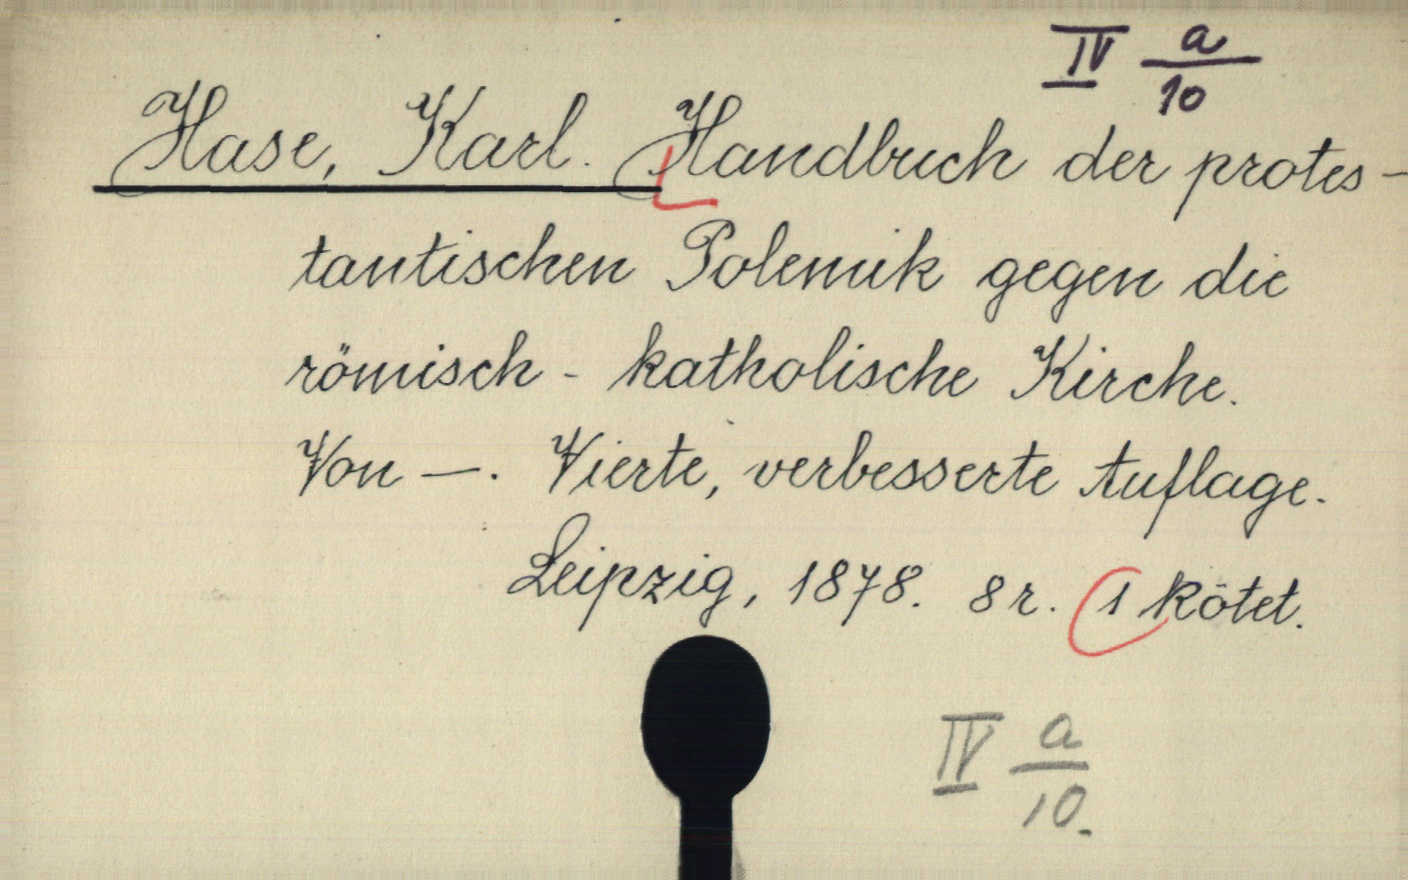 IV a/10
Hase, Karl. Handbuch der protes-
tantischen Polemik gegen die
römisch-katholische Kirche.
Von —. Vierte, verbesserte Auflage.
Leipzig, 1878. 8r. 1 kötet.
IV a/10.